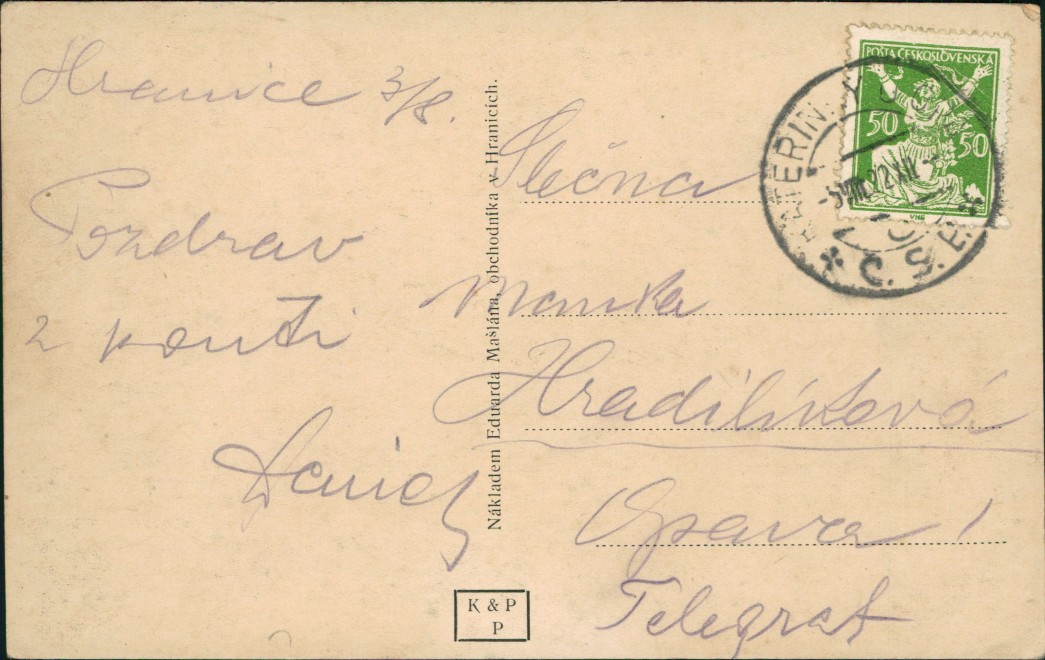 Hranice 3/8.
Pozdrav
z pouti
Nákladem Eduarda Mašláňa, obchodníka v Hranicích.
K & P
P
POŠTA ČESKOSLOVENSKÁ
50 50
KATEŘIN
* Č. S. *
Slečna
Hradilíková
Opava 1
Telegraf